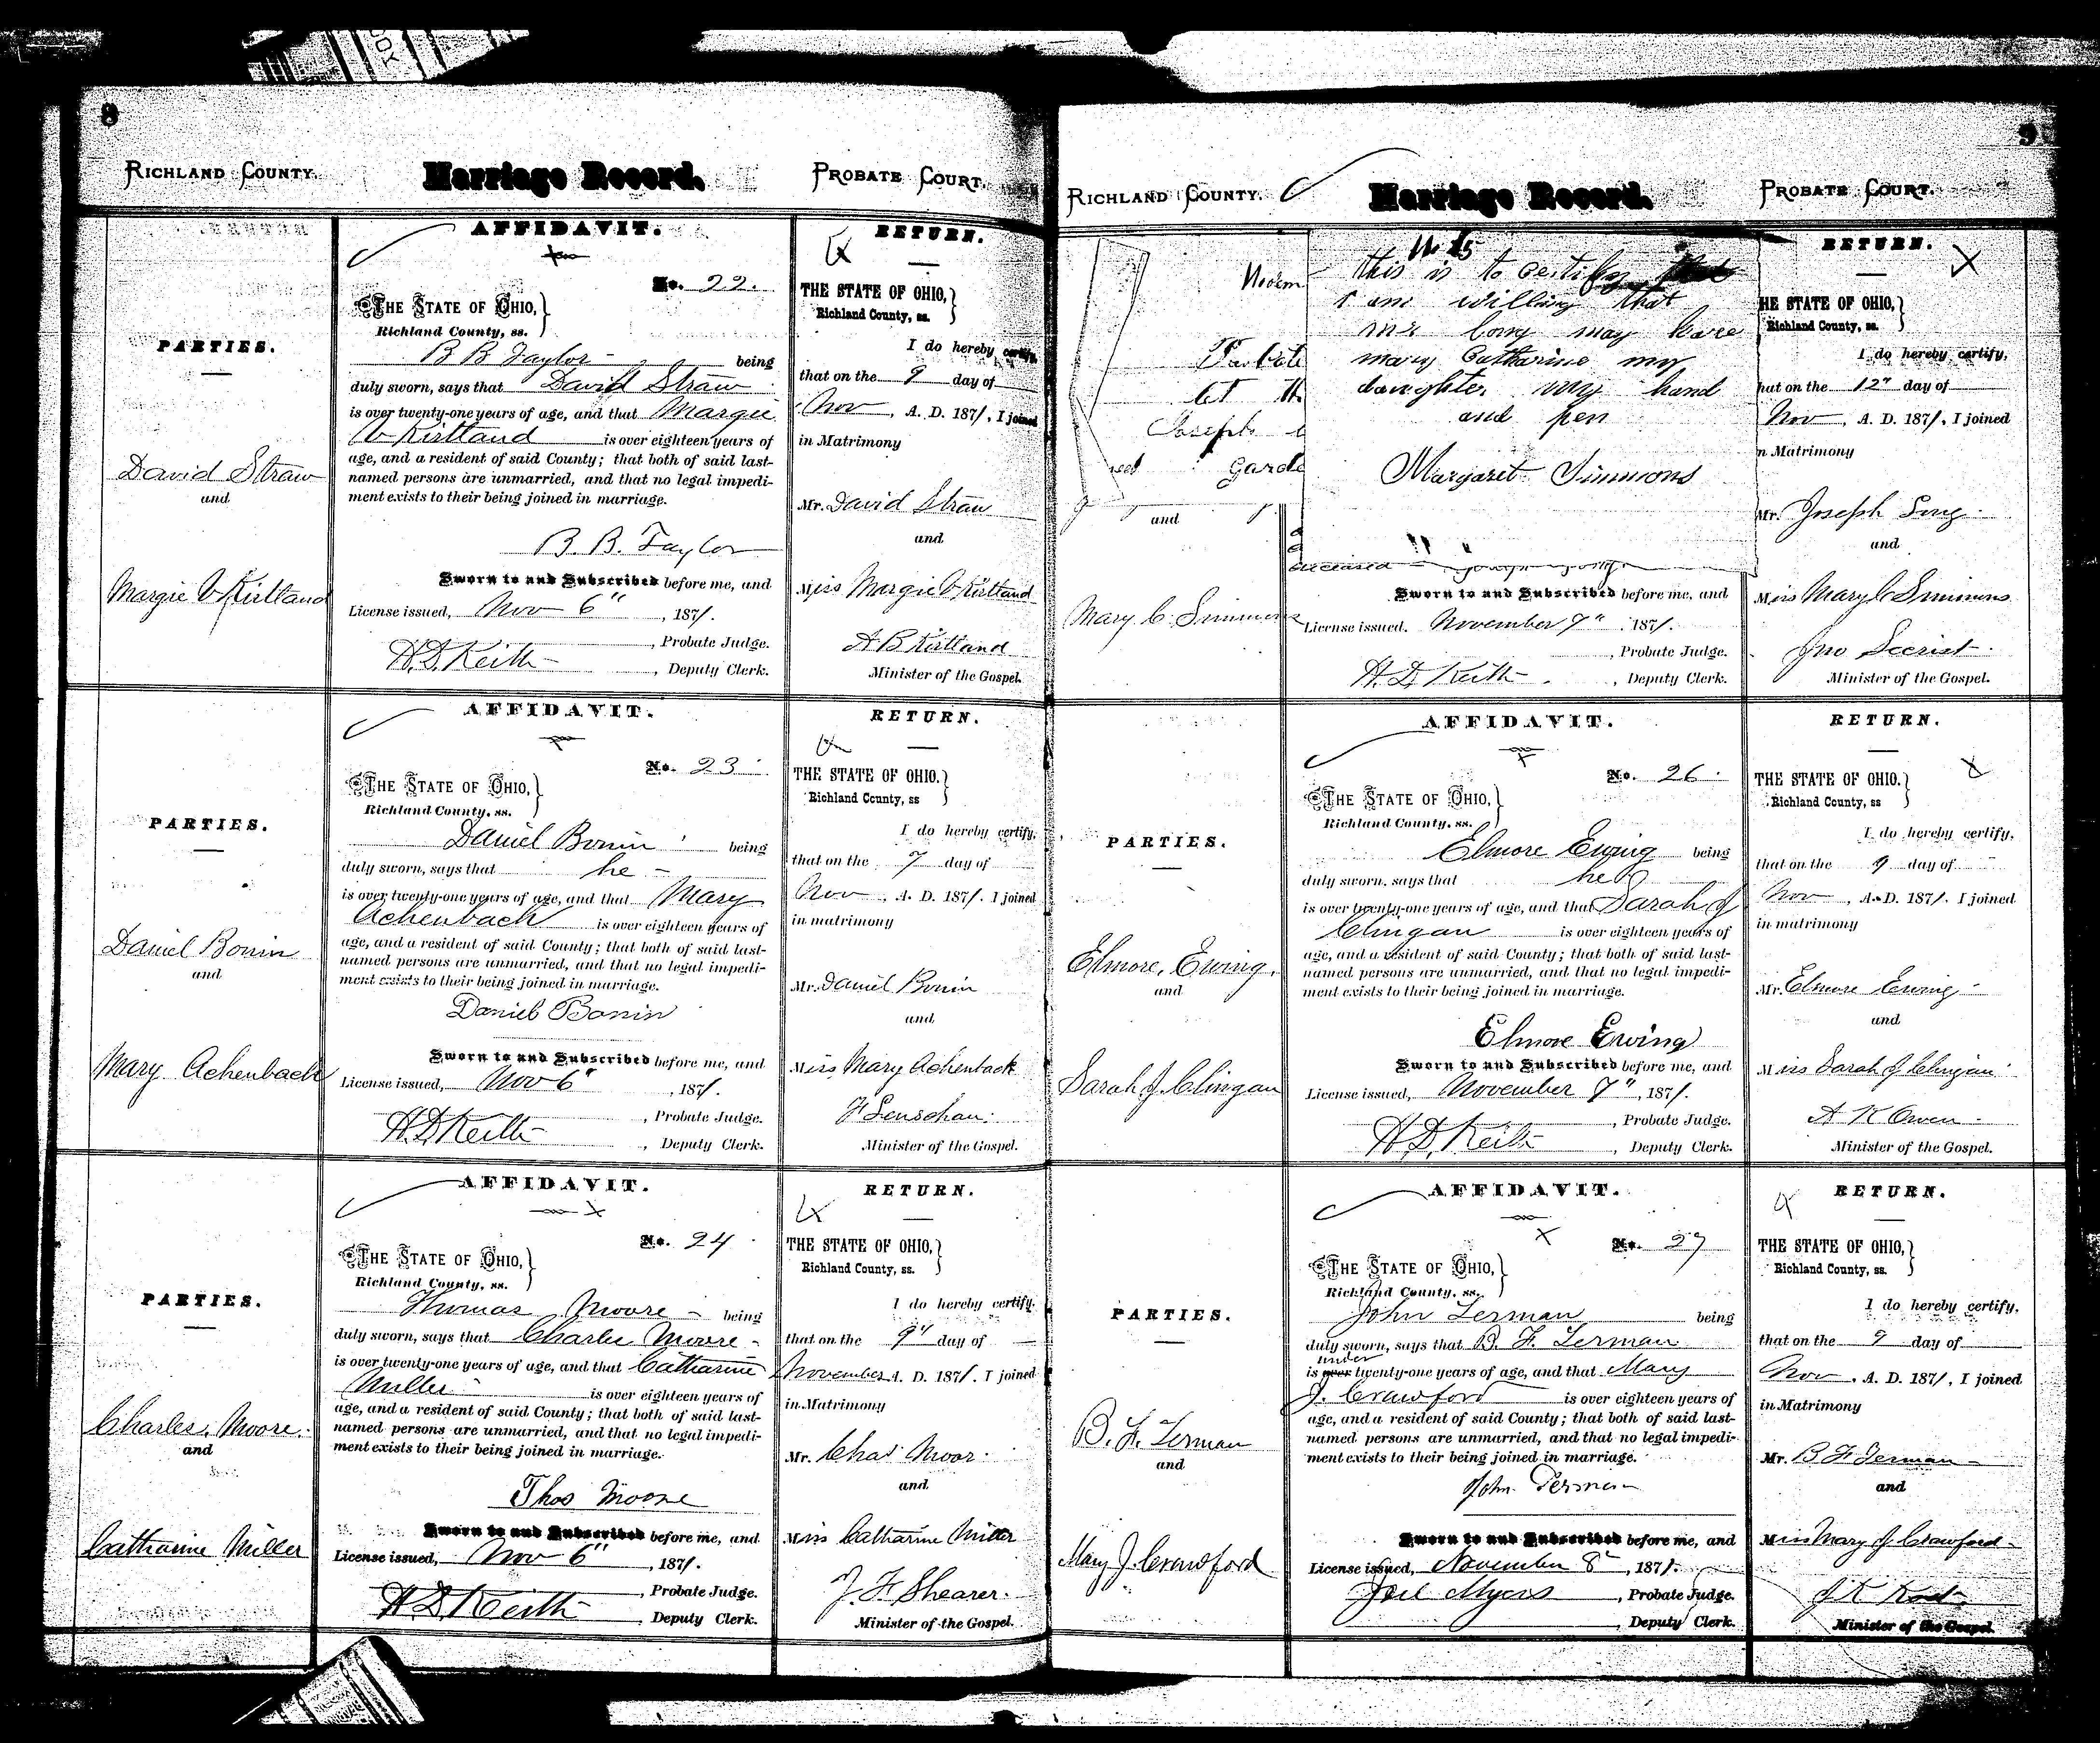 8
RICHLAND COUNTY.
Marriage Record.
PROBATE COURT.
PARTIES.
David Straw
and
Margie V Kirtland
AFFIDAVIT.
No. 22.
THE STATE OF OHIO,
Richland County, ss.
B B Taylor being
duly sworn, says that David Straw
is over twenty-one years of age, and that Margie
V Kirtland is over eighteen years of
age, and a resident of said County; that both of said last-
named persons are unmarried, and that no legal impedi-
ment exists to their being joined in marriage.
B. B. Taylor
Sworn to and Subscribed before me, and
License issued, Nov 6", 1871.
, Probate Judge.
H. D. Keith , Deputy Clerk.
RETURN.
THE STATE OF OHIO,
Richland County, ss.
I do hereby certify,
that on the 9 day of
Nov, A. D. 1871, I joined
in Matrimony
Mr. David Straw
and
Miss Margie V Kirtland
A B Kirtland
Minister of the Gospel.
PARTIES.
Daniel Bonin
and
Mary Achenbach
AFFIDAVIT.
No. 23
THE STATE OF OHIO,
Richland County, ss.
Daniel Bonin being
duly sworn, says that he
is over twenty-one years of age, and that Mary
Achenbach is over eighteen years of
age, and a resident of said County; that both of said last-
named persons are unmarried, and that no legal impedi-
ment exists to their being joined in marriage.
Daniel Bonin
Sworn to and Subscribed before me, and
License issued, Nov 6", 1871.
, Probate Judge.
H. D. Keith , Deputy Clerk.
RETURN.
THE STATE OF OHIO.
Richland County, ss
I do hereby certify,
that on the 7 day of
Nov, A. D. 1871. I joined
in matrimony
Mr. Daniel Bonin
and
Miss Mary Achenback
Minister of the Gospel.
PARTIES.
Charles Moore.
and
Catharine Miller
AFFIDAVIT.
No. 24
THE STATE OF OHIO,
Richland County, ss.
Thomas Moore being
duly sworn, says that Charles Moore
is over twenty-one years of age, and that Catharine
Miller is over eighteen years of
age, and a resident of said County; that both of said last-
named persons are unmarried, and that no legal impedi-
ment exists to their being joined in marriage.
Thos Moore
Sworn to and Subscribed before me, and
License issued, Nov 6", 1871.
, Probate Judge.
H. D. Keith , Deputy Clerk.
RETURN.
THE STATE OF OHIO,
Richland County, ss.
I do hereby certify,
that on the 9" day of
November A. D. 1871. I joined
in Matrimony
Mr. Chas Moor
and
Miss Catharine Miller
J. F. Shearer.
Minister of the Gospel.
9
RICHLAND COUNTY.
Marriage Record.
PROBATE COURT.
Joseph
and
Mary C. Simmons
this is to certify
I am willing that
mr long may have
mary Catharine my
daughter. my hand
and pen
Margaret Simmons
deceased
Sworn to and Subscribed before me, and
License issued. November 7" 1871.
, Probate Judge.
H. D. Keith , Deputy Clerk.
RETURN.
HE STATE OF OHIO,
Richland County, ss.
I do hereby certify,
hat on the 12" day of
Nov, A. D. 1871, I joined
n Matrimony
Mr. Joseph Long
and
Miss Mary C Simmons
Jno Secrist
Minister of the Gospel.
PARTIES.
Elmore Ewing.
and
Sarah J. Clingan
AFFIDAVIT.
No. 26
THE STATE OF OHIO,
Richland County, ss.
Elmore Ewing being
duly sworn, says that he
is over twenty-one years of age, and that Sarah J
Clingan is over eighteen years of
age, and a resident of said County; that both of said last-
named persons are unmarried, and that no legal impedi-
ment exists to their being joined in marriage.
Elmore Ewing
Sworn to and Subscribed before me, and
License issued, November 7", 1871.
, Probate Judge.
H. D. Keith , Deputy Clerk.
RETURN.
THE STATE OF OHIO.
Richland County, ss
I do hereby certify,
that on the 9 day of
Nov, A. D. 1871. I joined
in matrimony
Mr. Elmore Ewing
and
Miss Sarah J. Clingan
A K Owen
Minister of the Gospel.
PARTIES.
B. F. Terman
and
Mary J. Crawford
AFFIDAVIT.
No. 27
THE STATE OF OHIO,
Richland County, ss.
John Terman being
duly sworn, says that B. F. Terman
under
is over twenty-one years of age, and that Mary
J. Crawford is over eighteen years of
age, and a resident of said County; that both of said last-
named persons are unmarried, and that no legal impedi-
ment exists to their being joined in marriage.
John Terman
Sworn to and Subscribed before me, and
License issued, November 8", 1871.
Joel Myers , Probate Judge.
, Deputy Clerk.
RETURN.
THE STATE OF OHIO,
Richland County, ss.
I do hereby certify,
that on the 9 day of
Nov. A. D. 1871, I joined
in Matrimony
Mr. B F Terman
and
Miss Mary J Crawford
Minister of the Gospel.